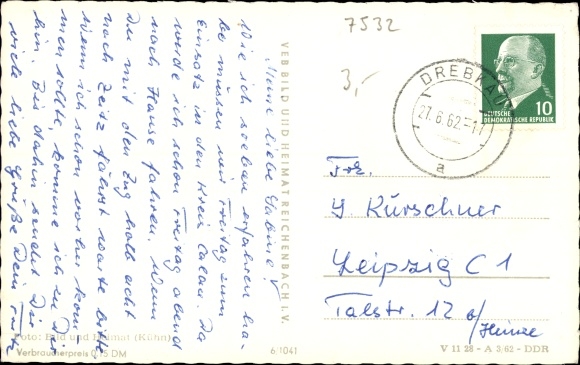 Meine liebe Sabine!
Wie ich soeben erfahren ha-
be müssen wir Freitag zum
Einsatz in den Kreis Calau. Da
werde ich schon Freitag abend
nach Hause fahren. Wenn
Du mit den Zug halb acht
nach Zeitz fährst warte bitte
wenn ich schon vorher kom
men sollte, komme ich zu Dir
hin. Bis dahin sendet Dir
viele liebe Grüße Dein
VEB BILD UND HEIMAT REICHENBACH i. V.
7532
3,-
DREBKAU
27.6.62.-17
a
10
DEUTSCHE
DEMOKRATISCHE REPUBLIK
Frl.
Kürschner
Leipzig C 1
Talstr. 12 b/
Heinze
Foto: Bild und Heimat (Kühn)
Verbraucherpreis 0,15 DM
6/1041
V 11 28 - A 3/62 - DDR